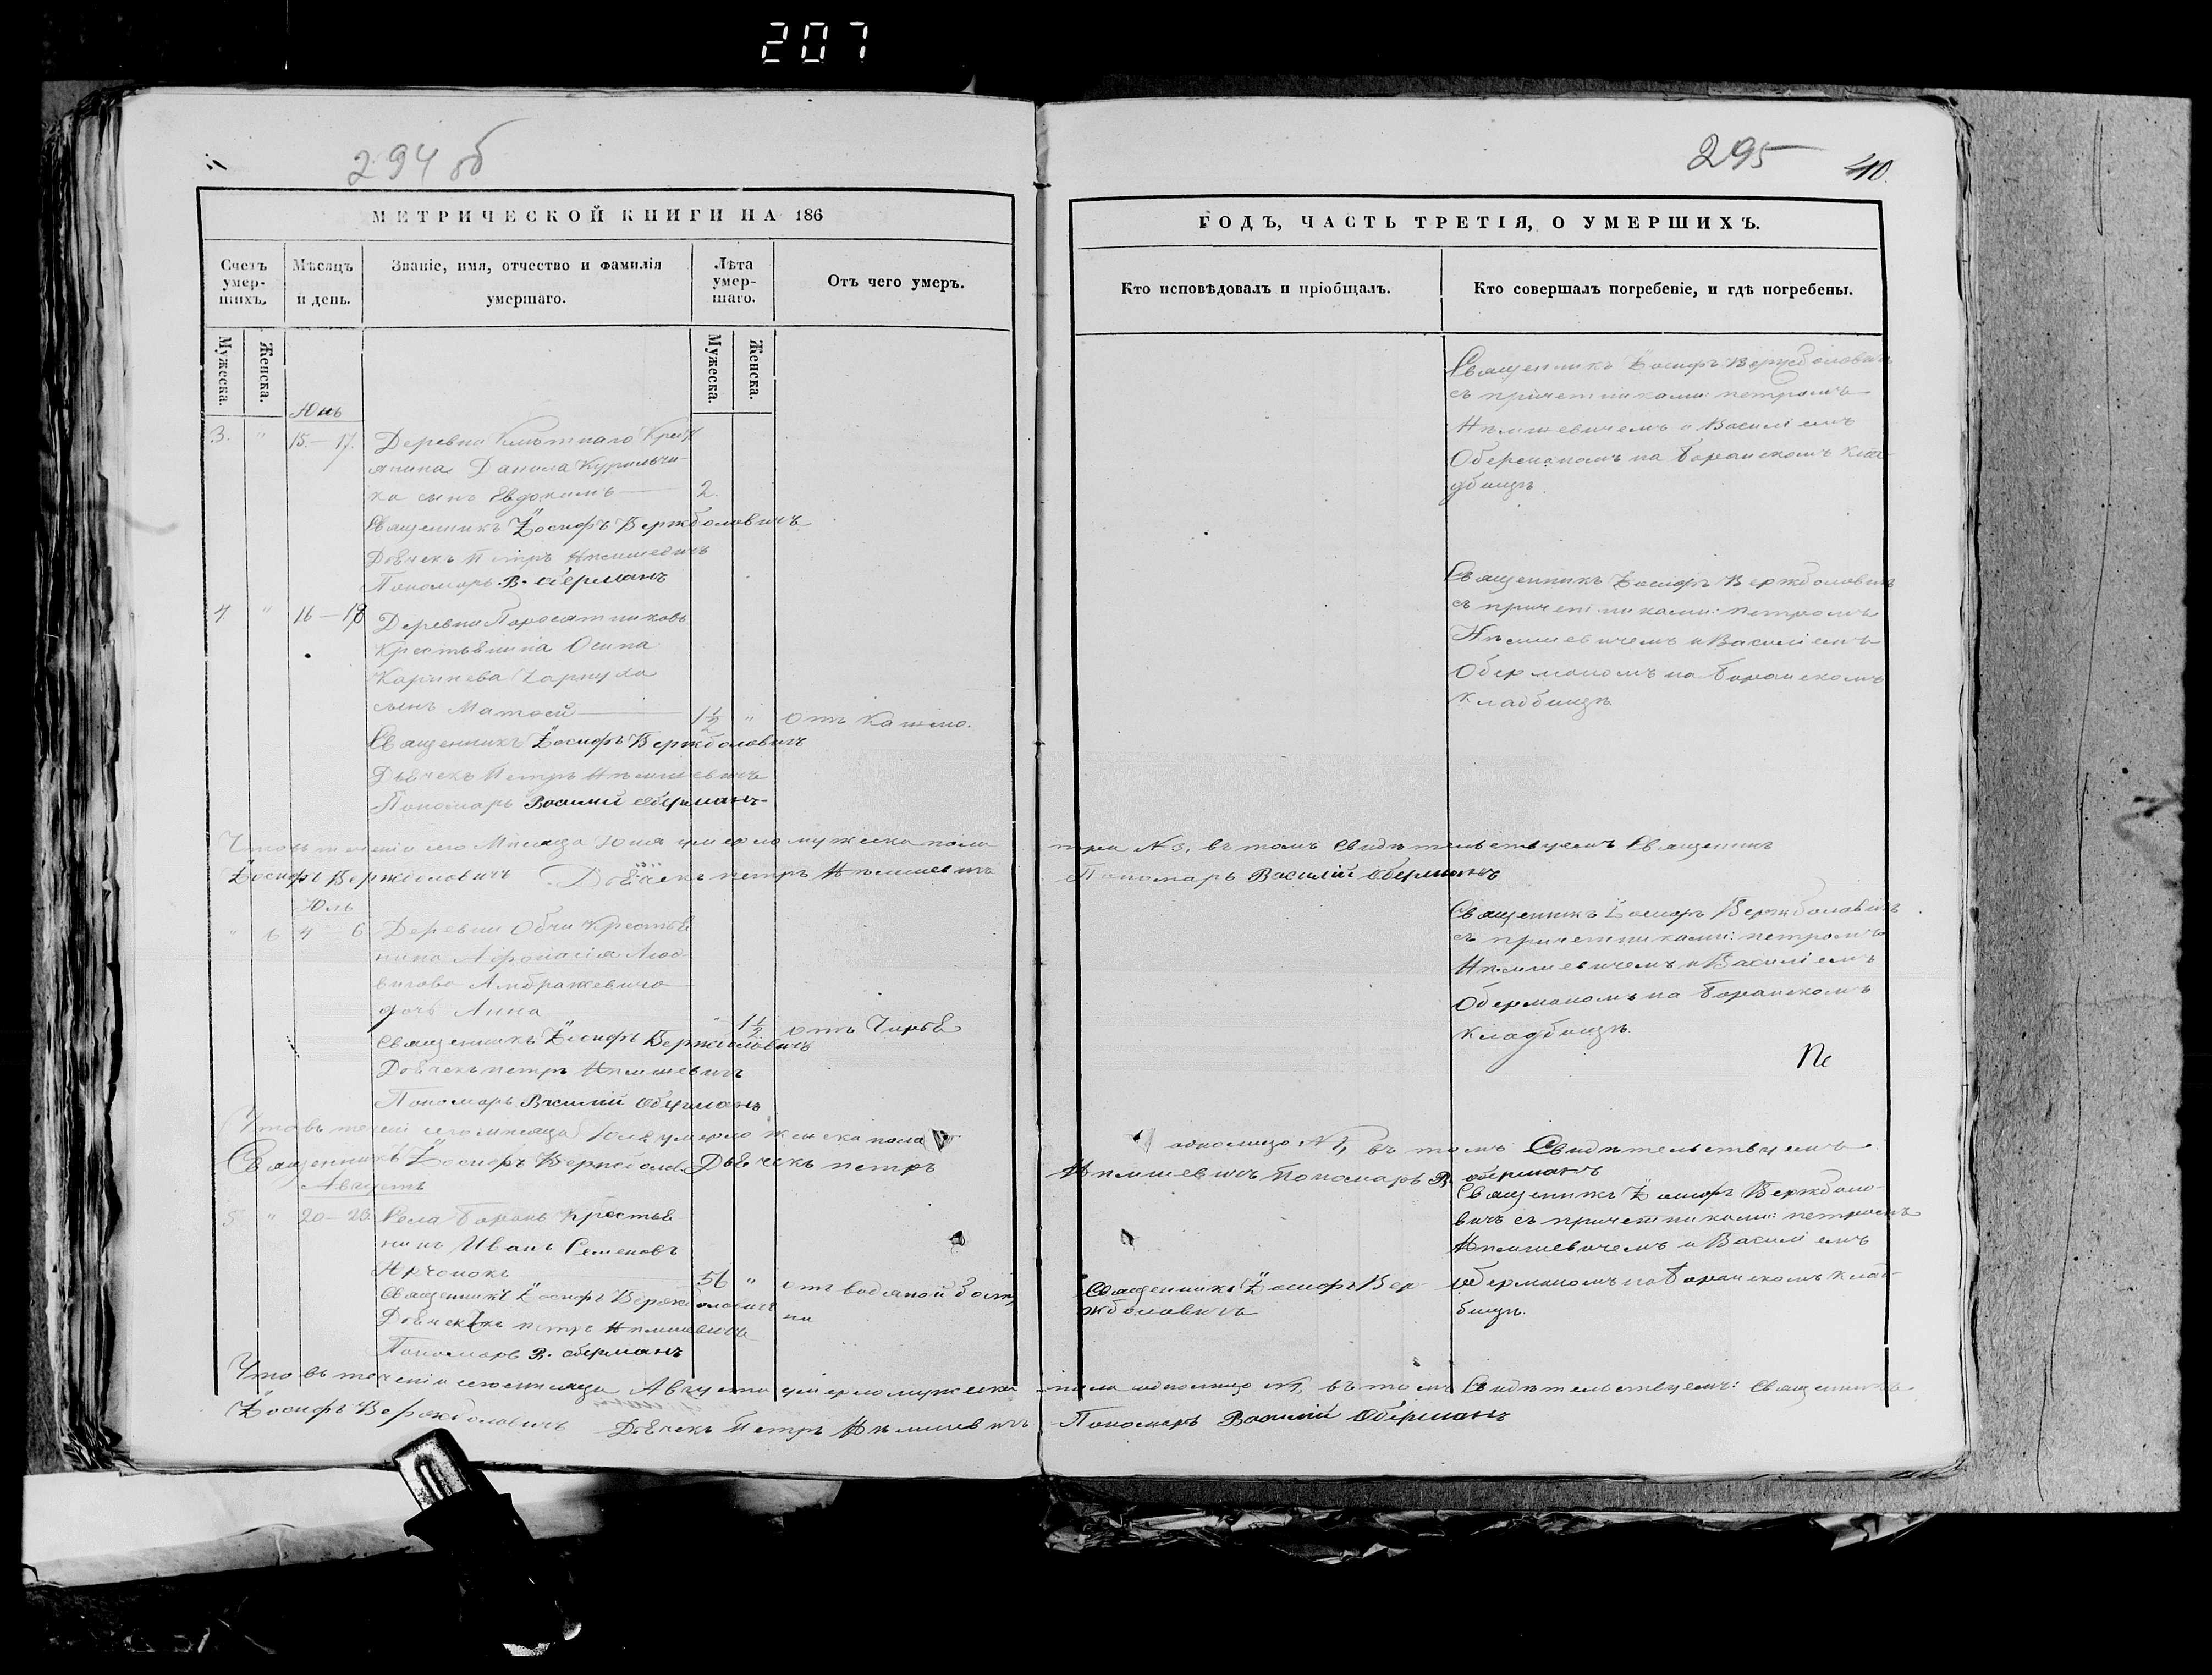 207
294 об
295
40.
МЕТРИЧЕСКОЙ КНИГИ НА 186
Счетъ умер-шихъ.
Мѣсяцъ и день.
Званіе, имя, отчество и фамилія умершаго.
Лѣта умер-шаго.
Отъ чего умеръ.
Мужеска.
Женска.
Мужеска.
Женска.
Юнь
3. " 15.—17. Деревни Крест
янина Данила Курильчи-
ка сынъ Евдокимъ — 2.
Священникъ Іосифъ Вержболовичъ
Дьячекъ Петръ Нѣмшевичъ
Пономарь В. Оберманъ
4 " 16—18 Деревни Поросятниковъ
Крестьянина Осипа
сынъ Матѳей — 1½ " отъ кашлю.
Священникъ Іосифъ Вержболовичъ
Дьячекъ Петръ Нѣмшевичъ
Пономарь Василій Оберманъ
Что въ теченіи сего Мѣсяца Юня умерло мужеска пола
Іосифъ Вержболовичъ Дьячекъ петръ Нѣмшевичъ
Юль
" 6 4 6 Деревни Обчи Крестья
нина Афонасія
Амбражевича
дочь Анна " 1½ отъ
Священникъ Іосифъ Вержболовичъ
Дьячекъ петръ Нѣмшевичъ
Пономарь Василий Оберманъ
Что въ теченіи сего мѣсяца Юля умерло женска пола
Священникъ Іосифъ Вержболов Дьячекъ петръ
Августъ
5 " 20— Села Боранъ Крестья
нинъ Иванъ Семеновъ
56 " отъ водяной болѣз
ни
Священникъ Іосифъ Вержболовичъ
Дьячекъ петръ Нѣмшевичъ
Пономарь В. Оберманъ
Что въ теченіи сего мѣсяца Августа умерло мужеска
Іосифъ Вержболовичъ Дьячекъ Петръ Нѣмшевичъ
ГОДЪ, ЧАСТЬ ТРЕТІЯ, О УМЕРШИХЪ.
Кто исповѣдовалъ и пріобщалъ.
Кто совершалъ погребеніе, и гдѣ погребены.
Священникъ Іосифъ Вержболовичъ
съ причетниками: петромъ
Нѣмшевичемъ и Василіемъ
Оберманомъ на Боранскомъ кла-
дбищѣ.
Священникъ Іосифъ Вержболовичъ
съ причетниками: петромъ
Нѣмшевичемъ и Василіемъ
Оберманомъ на Боранскомъ
Кладбищѣ
три № 3, въ томъ свидѣтельствуемъ Священникъ
Пономарь Василій Оберманъ
Священникъ Іосифъ Вержболовичъ
съ причетниками: петромъ
Нѣмшевичемъ и Василіемъ
Оберманомъ на Боранскомъ
Кладбищѣ.
одно лицо № 1, въ томъ Свидѣтельствуемъ
Нѣмшевичъ Пономарь В. Оберманъ
Священникъ Іосифъ Вержболо-
вичъ съ причетниками: петромъ
Нѣмшевичемъ и Василіемъ
Оберманомъ на Боранскомъ клад-
бищѣ.
Священникъ Іосифъ Вер-
жболовичъ
пола одно лицо № 1, въ томъ Свидѣтельствуемъ: Священникъ
Пономарь Василий Оберманъ